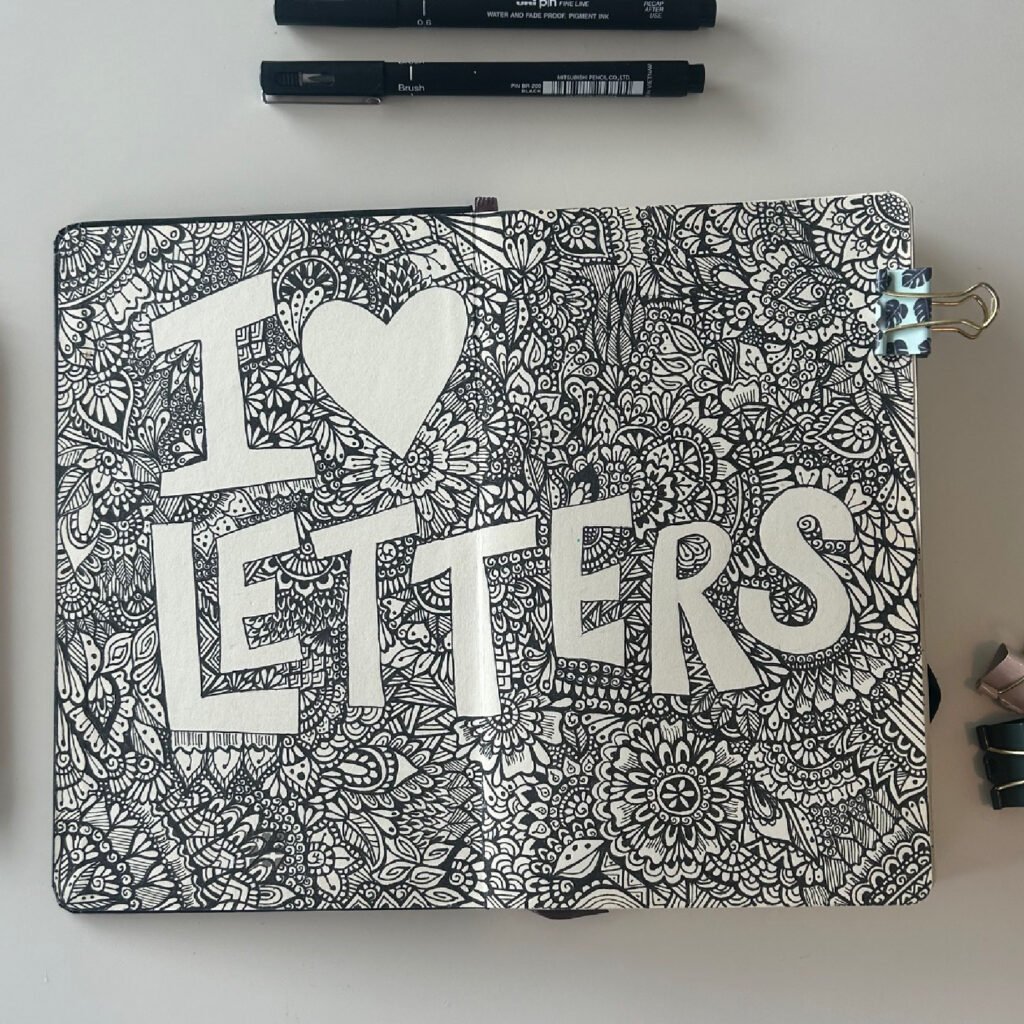 uni pin FINE LINE
WATER AND FADE PROOF, PIGMENT INK
RECAP
AFTER
USE
0.6
Brush
MITSUBISHI PENCIL CO., LTD.
PIN BR-200
BLACK
IN VIETNAM
I ♥
LETTERS